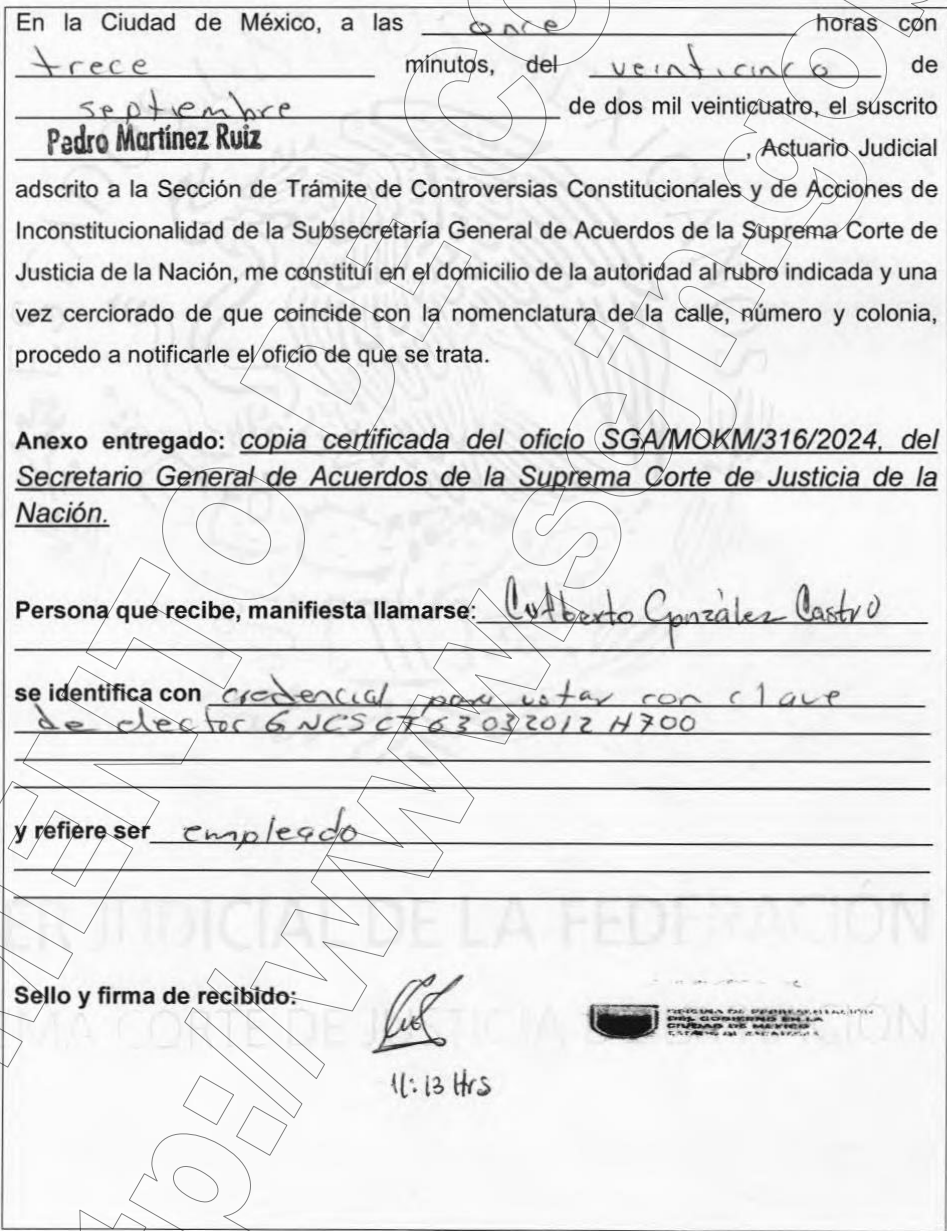 En la Ciudad de México, a las once horas con
trece minutos, del veinticinco de
septiembre de dos mil veinticuatro, el suscrito
Pedro Martínez Ruiz, Actuario Judicial
adscrito a la Sección de Trámite de Controversias Constitucionales y de Acciones de
Inconstitucionalidad de la Subsecretaría General de Acuerdos de la Suprema Corte de
Justicia de la Nación, me constituí en el domicilio de la autoridad al rubro indicada y una
vez cerciorado de que coincide con la nomenclatura de la calle, número y colonia,
procedo a notificarle el oficio de que se trata.
Anexo entregado: copia certificada del oficio SGA/MOKM/316/2024, del
Secretario General de Acuerdos de la Suprema Corte de Justicia de la
Nación.
Persona que recibe, manifiesta llamarse: Cutberto González Castro
se identifica con credencial para votar con clave
de elector GNCSCT63032012H700
y refiere ser empleado
ER JUDICIAL DE LA FEDERACIÓN
Sello y firma de recibido:
MA CORTE DE JUSTICIA DE LA NACIÓN
OFICINA DE REPRESENTACIÓN
DEL GOBIERNO EN LA
CIUDAD DE MÉXICO
ESTADO DE ZACATECAS
11:13 Hrs